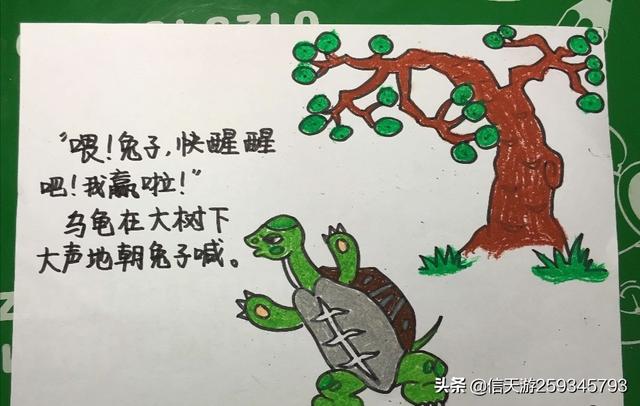 “喂！兔子，快醒醒
吧！我赢啦！”
乌龟在大树下
大声地朝兔子喊。
头条 @信天游259345793